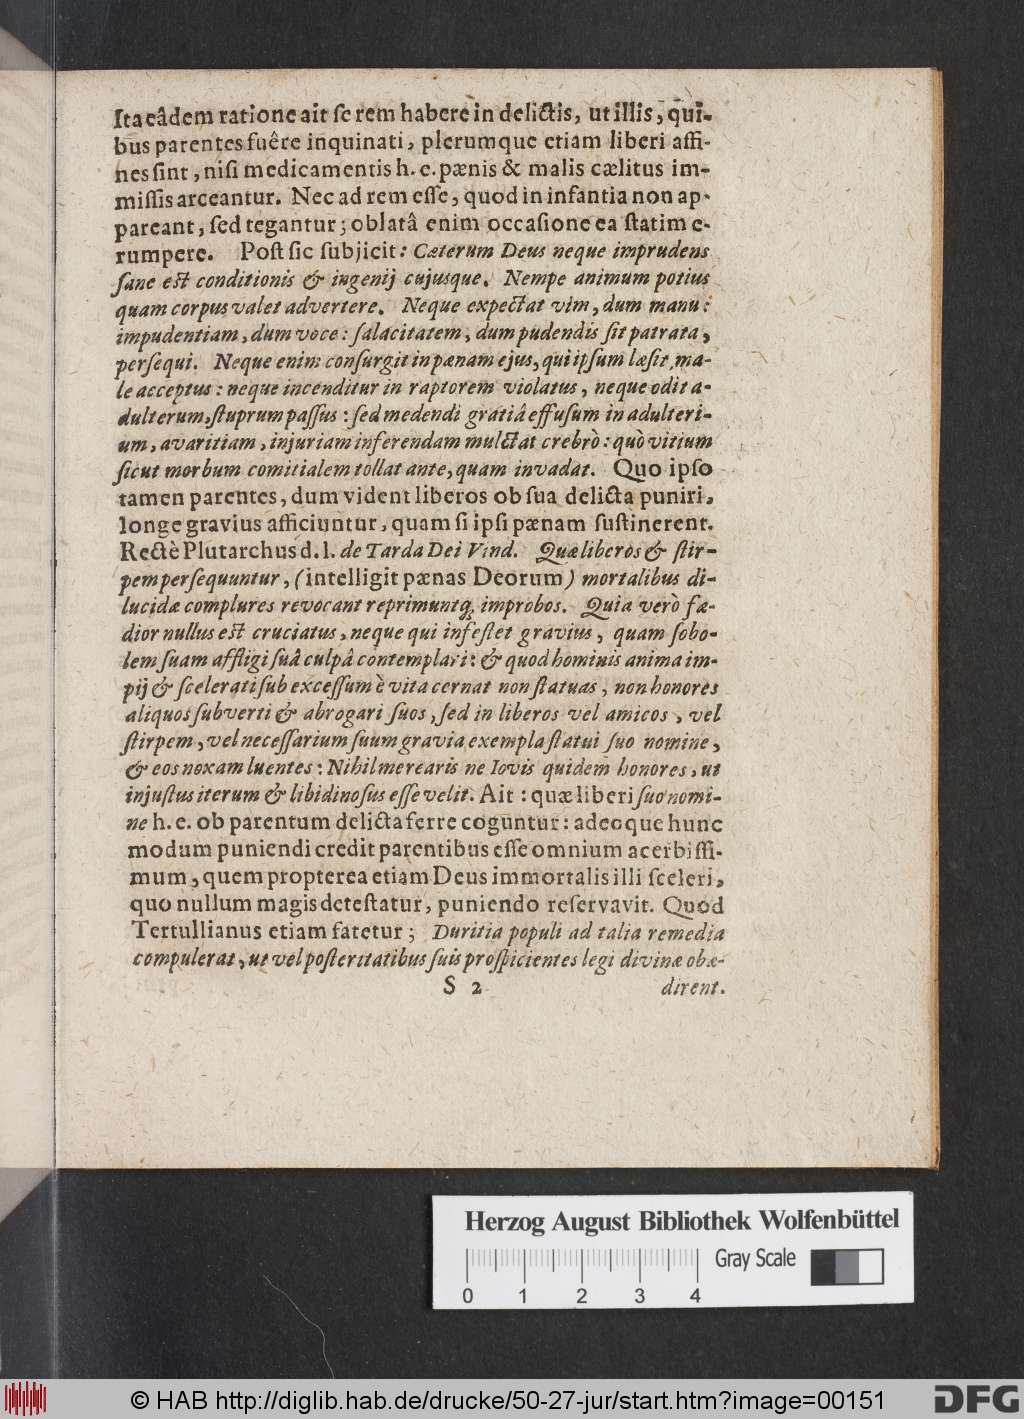 Ita eâdem ratione ait se rem habere in delictis, ut illis, qui-
bus parentes fuêre inquinati, plerumque etiam liberi affi-
nes sint, nisi medicamentis h. e. pænis & malis cælitus im-
missis arceantur. Nec ad rem esse, quod in infantia non ap-
pareant, sed tegantur; oblatâ enim occasione ea statim e-
rumpere. Post sic subjicit: Cæterum Deus neque imprudens
sane est conditionis & ingenij cujusque. Nempe animum potius
quam corpus valet advertere. Neque expectat vim, dum manu:
impudentiam, dum voce: salacitatem, dum pudendis sit patrata,
persequi. Neque enim consurgit in pænam ejus, qui ipsum læsit, ma-
le acceptus: neque incenditur in raptorem violatus, neque odit a-
dulterum, stuprum passus: sed medendi gratiâ effusum in adulteri-
um, avaritiam, injuriam inferendam mulctat crebrò: quò vitium
sicut morbum comitialem tollat ante, quam invadat. Quo ipso
tamen parentes, dum vident liberos ob sua delicta puniri,
longe gravius afficiuntur, quam si ipsi pænam sustinerent.
Rectè Plutarchus d. l. de Tarda Dei Vind. Quæ liberos & stir-
pem persequuntur, (intelligit pænas Deorum) mortalibus di-
lucidæ complures revocant reprimuntq́; improbos. Quia verò fæ-
dior nullus est cruciatus, neque qui infestet gravius, quam sobo-
lem suam affligi suâ culpâ contemplari: & quod hominis anima im-
pij & scelerati sub excessum è vita cernat non statuas, non honores
aliquos subverti & abrogari suos, sed in liberos vel amicos, vel
stirpem, vel necessarium suum gravia exempla statui suo nomine,
& eos noxam luentes: Nihil merearis ne Iovis quidem honores, ut
injustus iterum & libidinosus esse velit. Ait: quæ liberi suo nomi-
ne h. e. ob parentum delicta ferre coguntur: adeoque hunc
modum puniendi credit parentibus esse omnium acerbissi-
mum, quem propterea etiam Deus immortalis illi sceleri,
quo nullum magis detestatur, puniendo reservavit. Quod
Tertullianus etiam fatetur; Duritia populi ad talia remedia
compulerat, ut vel posteritatibus suis prospicientes legi divinæ obæ-
S 2 dirent.
Herzog August Bibliothek Wolfenbüttel
Gray Scale
0 1 2 3 4
© HAB http://diglib.hab.de/drucke/50-27-jur/start.htm?image=00151
DFG